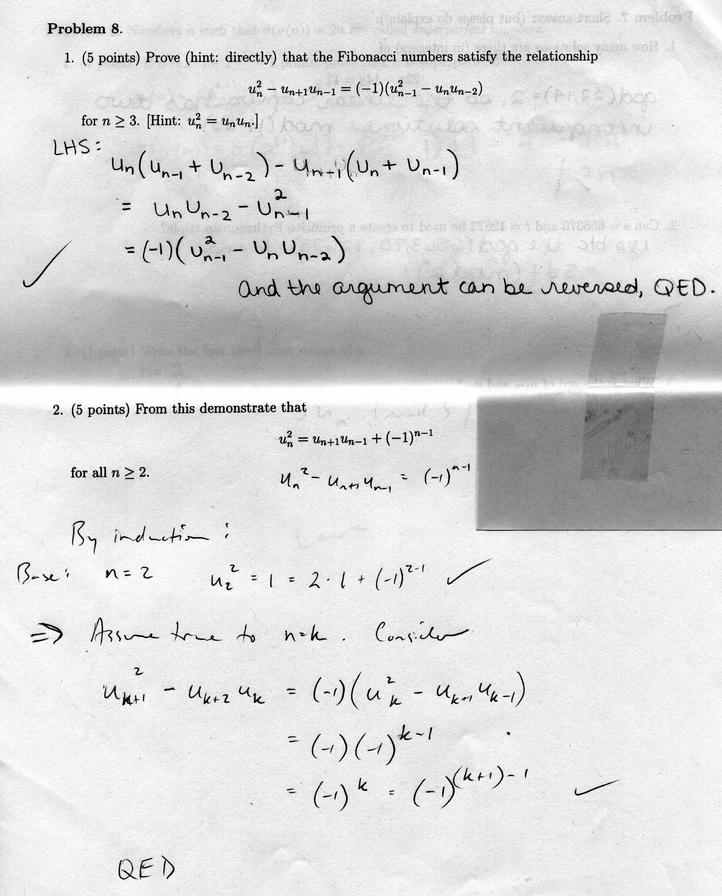 Problem 8.
1. (5 points) Prove (hint: directly) that the Fibonacci numbers satisfy the relationship
uₙ² − uₙ₊₁uₙ₋₁ = (−1)(uₙ₋₁² − uₙuₙ₋₂)
for n ≥ 3. [Hint: uₙ² = uₙuₙ.]
LHS:
Uₙ(Uₙ₋₁ + Uₙ₋₂) − Uₙ₊₁(Uₙ + Uₙ₋₁)
= UₙUₙ₋₂ − Uₙ₋₁²
= (−1)(Uₙ₋₁² − UₙUₙ₋₂)
✓
And the argument can be reversed, QED.
2. (5 points) From this demonstrate that
uₙ² = uₙ₊₁uₙ₋₁ + (−1)ⁿ⁻¹
for all n ≥ 2.
uₙ² − uₙ₊₁uₙ₋₁ = (−1)ⁿ⁻¹
By induction:
Base: n=2 u₂² = 1 = 2·1 + (−1)²⁻¹ ✓
⇒ Assume true to n=k. Consider
uₖ₊₁² − uₖ₊₂uₖ = (−1)(uₖ² − uₖ₊₁uₖ₋₁)
= (−1)(−1)ᵏ⁻¹
= (−1)ᵏ = (−1)⁽ᵏ⁺¹⁾⁻¹ ✓
QED